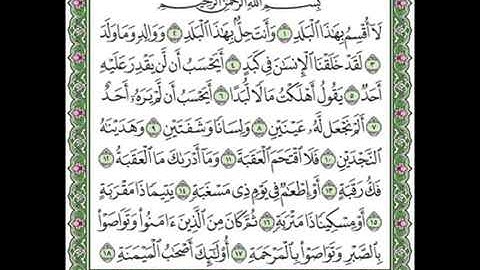 بِسْمِ ٱللَّهِ ٱلرَّحْمَٰنِ ٱلرَّحِيمِ
لَآ أُقْسِمُ بِهَٰذَا ٱلْبَلَدِ ١ وَأَنتَ حِلُّۢ بِهَٰذَا ٱلْبَلَدِ ٢ وَوَالِدٍ وَمَا وَلَدَ
٣ لَقَدْ خَلَقْنَا ٱلْإِنسَٰنَ فِى كَبَدٍ ٤ أَيَحْسَبُ أَن لَّن يَقْدِرَ عَلَيْهِ
أَحَدٌ ٥ يَقُولُ أَهْلَكْتُ مَالًا لُّبَدًا ٦ أَيَحْسَبُ أَن لَّمْ يَرَهُۥٓ أَحَدٌ
٧ أَلَمْ نَجْعَل لَّهُۥ عَيْنَيْنِ ٨ وَلِسَانًا وَشَفَتَيْنِ ٩ وَهَدَيْنَٰهُ
ٱلنَّجْدَيْنِ ١٠ فَلَا ٱقْتَحَمَ ٱلْعَقَبَةَ ١١ وَمَآ أَدْرَىٰكَ مَا ٱلْعَقَبَةُ ١٢
فَكُّ رَقَبَةٍ ١٣ أَوْ إِطْعَٰمٌ فِى يَوْمٍ ذِى مَسْغَبَةٍ ١٤ يَتِيمًا ذَا مَقْرَبَةٍ
١٥ أَوْ مِسْكِينًا ذَا مَتْرَبَةٍ ١٦ ثُمَّ كَانَ مِنَ ٱلَّذِينَ ءَامَنُوا۟ وَتَوَاصَوْا۟
بِٱلصَّبْرِ وَتَوَاصَوْا۟ بِٱلْمَرْحَمَةِ ١٧ أُو۟لَٰٓئِكَ أَصْحَٰبُ ٱلْمَيْمَنَةِ ١٨